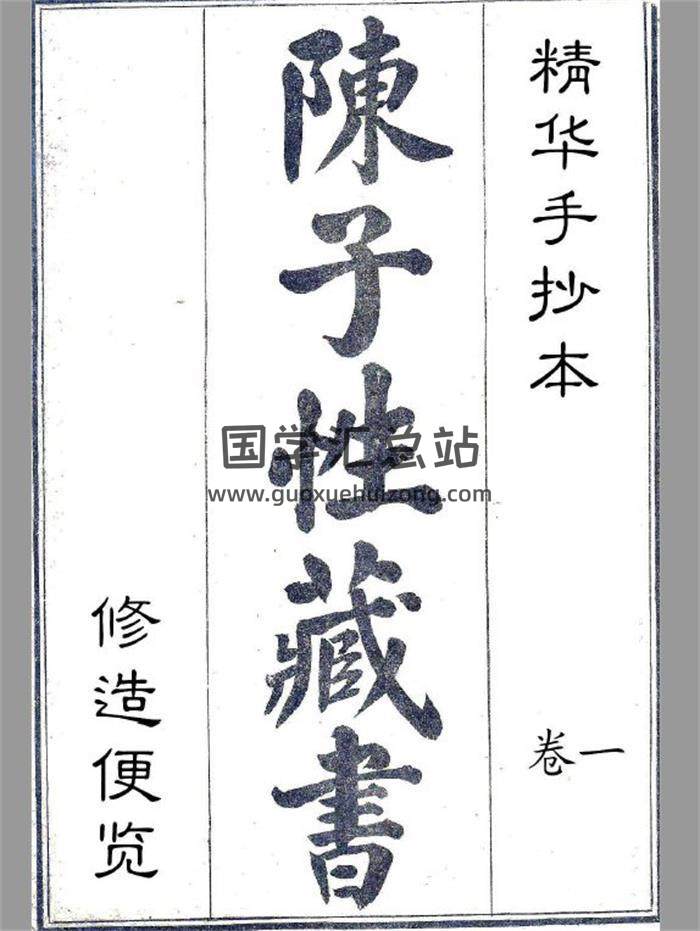 精华手抄本
卷一
陳子性藏書
修造便览
国学汇总站
www.guoxuehuizong.com